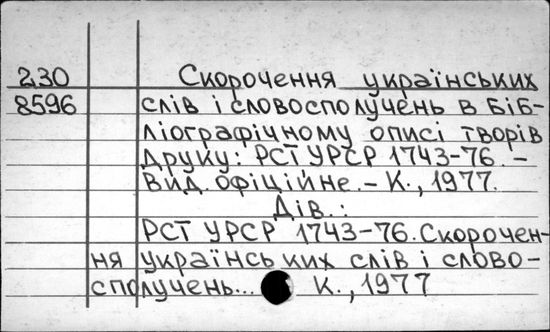 230 Скорочення українських
8596 слів і словосполучень в біб-
ліографічному описі творів
друку: РСТ УРСР 1743-76. –
Вид. офіційне. – К., 1977.
Дів.:
РСТ УРСР 1743-76. Скорочен-
ня українських слів і слово-
сполучень... К., 1977